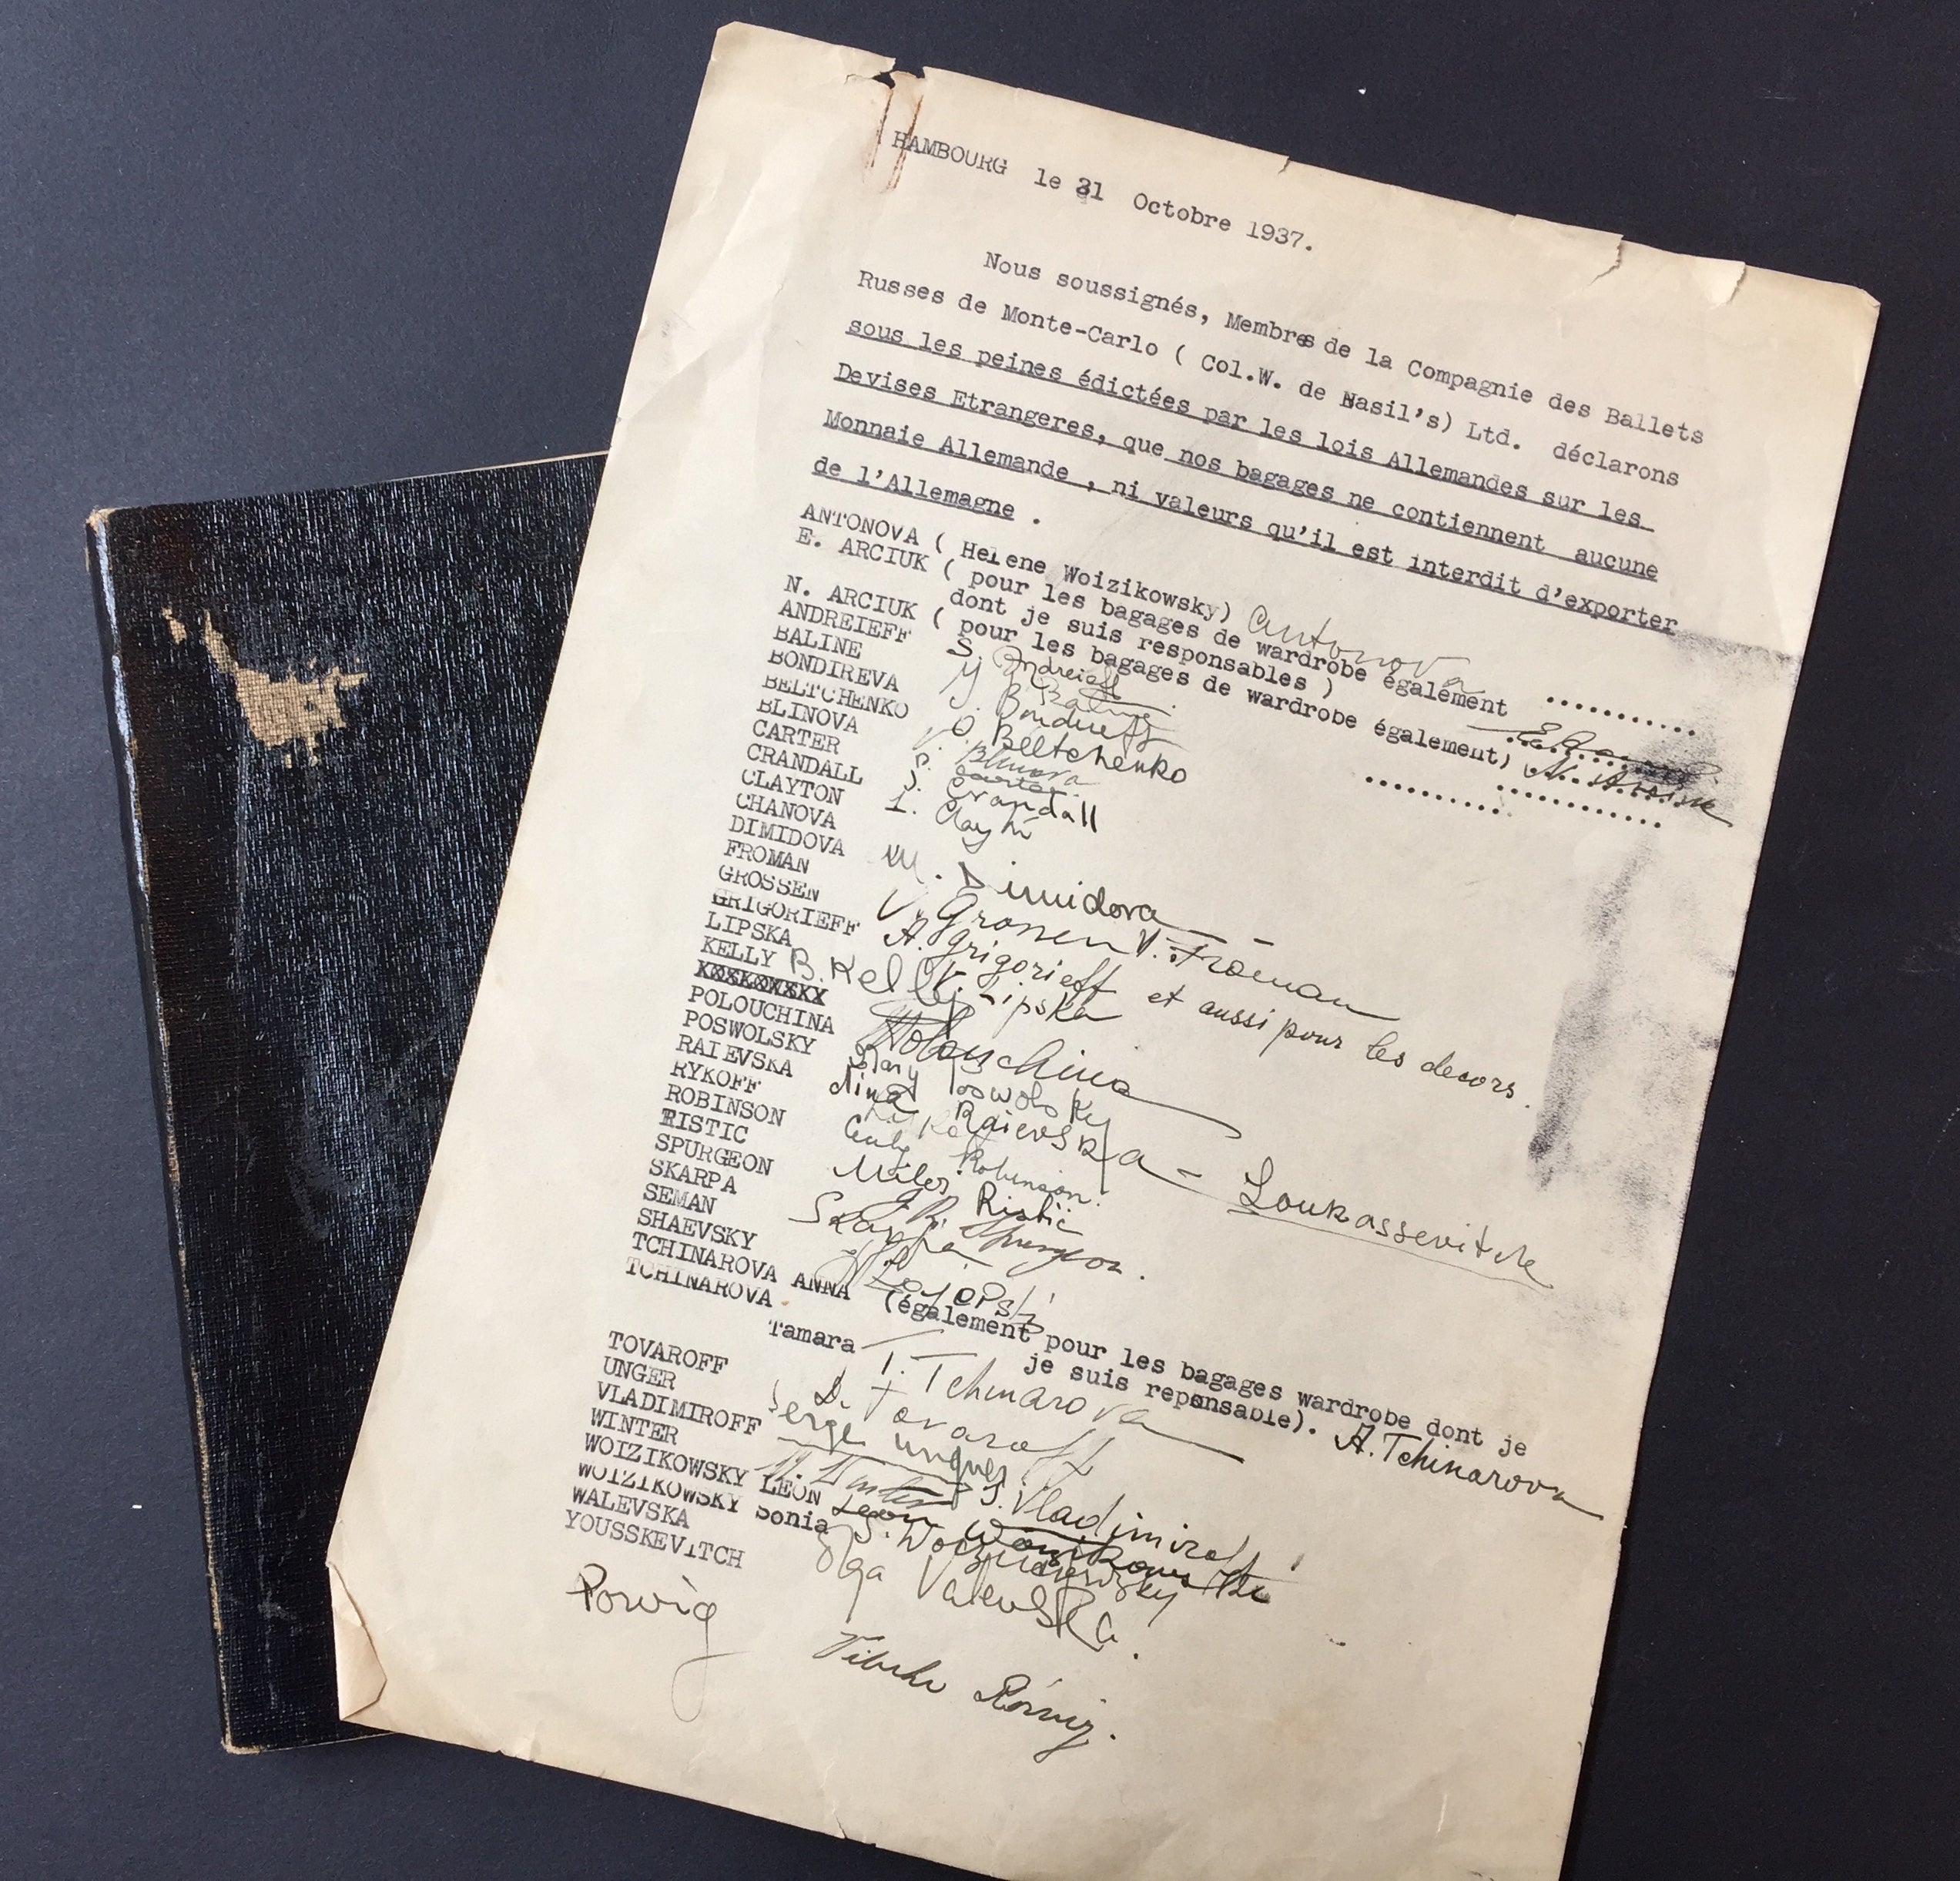 HAMBOURG le 31 Octobre 1937.
Nous soussignés, Membres de la Compagnie des Ballets
Russes de Monte-Carlo ( Col.W. de Basil's) Ltd. déclarons
sous les peines édictées par les lois Allemandes sur les
Devises Etrangeres, que nos bagages ne contiennent aucune
Monnaie Allemande , ni valeurs qu'il est interdit d'exporter
de l'Allemagne .
ANTONOVA ( Helene Woizikowsky) Antonova ...........
E. ARCIUK ( pour les bagages de wardrobe également
dont je suis responsables )
N. ARCIUK ( pour les bagages de wardrobe également)
ANDREIEFF S. Andreieff
BALINE Y Baline
BONDIREVA
BELTCHENKO O. Beltchenko
BLINOVA Blinova
CARTER Carter
CRANDALL Crandall
CLAYTON
CHANOVA
DIMIDOVA M. Dimidova
FROMAN V. Froman
GROSSEN V. Grossen
GRIGORIEFF A. Grigorieff et aussi pour les decors.
LIPSKA V. Lipska
KELLY B. Kelly
POLOUCHINA Polouchina
POSWOLSKY Mary Poswolsky
RAIEVSKA Nina Raievska - Loukassevitch
RYKOFF
ROBINSON Robinson.
RISTIC Milos Ristic
SPURGEON Spurgeon.
SKARPA Skarpa
SEMAN
SHAEVSKY
TCHINAROVA ANNA (également pour les bagages wardrobe dont je
je suis reponsable). A. Tchinarova
TCHINAROVA Tamara T. Tchinarova
TOVAROFF D. Tovaroff
UNGER Serge Unger
VLADIMIROFF S. Vladimiroff
WINTER
WOIZIKOWSKY LEON Leon Woizikowski
WOIZIKOWSKY Sonia S. Woizikowsky
WALEVSKA Olga Valevska.
YOUSSKEVITCH
Rowig